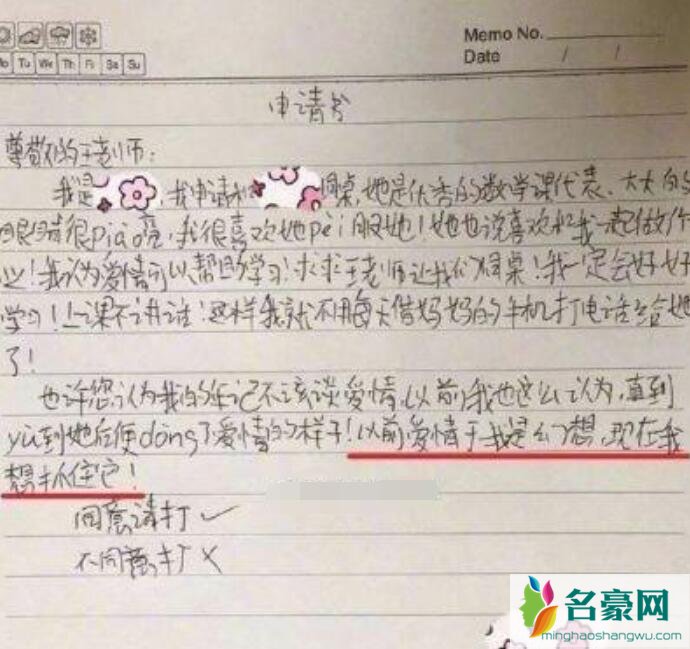 Memo No.
Date / /
Mo Tu We Th Fr Sa Su
申请书
尊敬的王老师：
我是，我申请和同桌，她是优秀的数学课代表、大大的
眼睛很piao亮，我很喜欢她pèi服她！她也说喜欢和我一起做作
业！我认为爱情可以帮助学习！求求王老师让我们同桌！我一定会好好
学习！上课不讲话！这样我就不用每天借妈妈的手机打电话给她
了！
也许您认为我的年记不该谈爱情，以前我也这么认为，直到
yù到她后便dǒng了爱情的样子！以前爱情于我是幻想，现在我
想抓住它！
同意请打✓
不同意打×
名豪网
minghaoshangwu.com